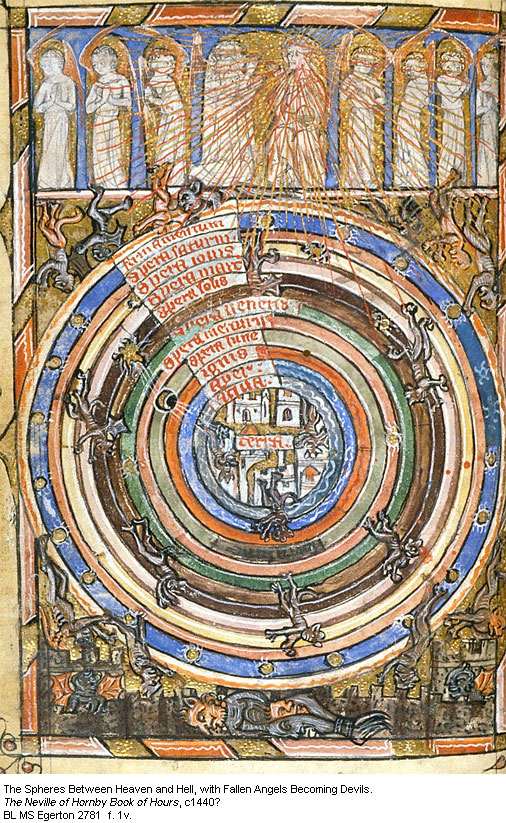 firmamentum
Spera saturni
Spera iouis
Spera
Spera solis
Spera ueneris
Spera
Spera lune
ignis
Aer
aqua
The Spheres Between Heaven and Hell, with Fallen Angels Becoming Devils.
The Neville of Hornby Book of Hours, c1440?
BL MS Egerton 2781 f. 1v.